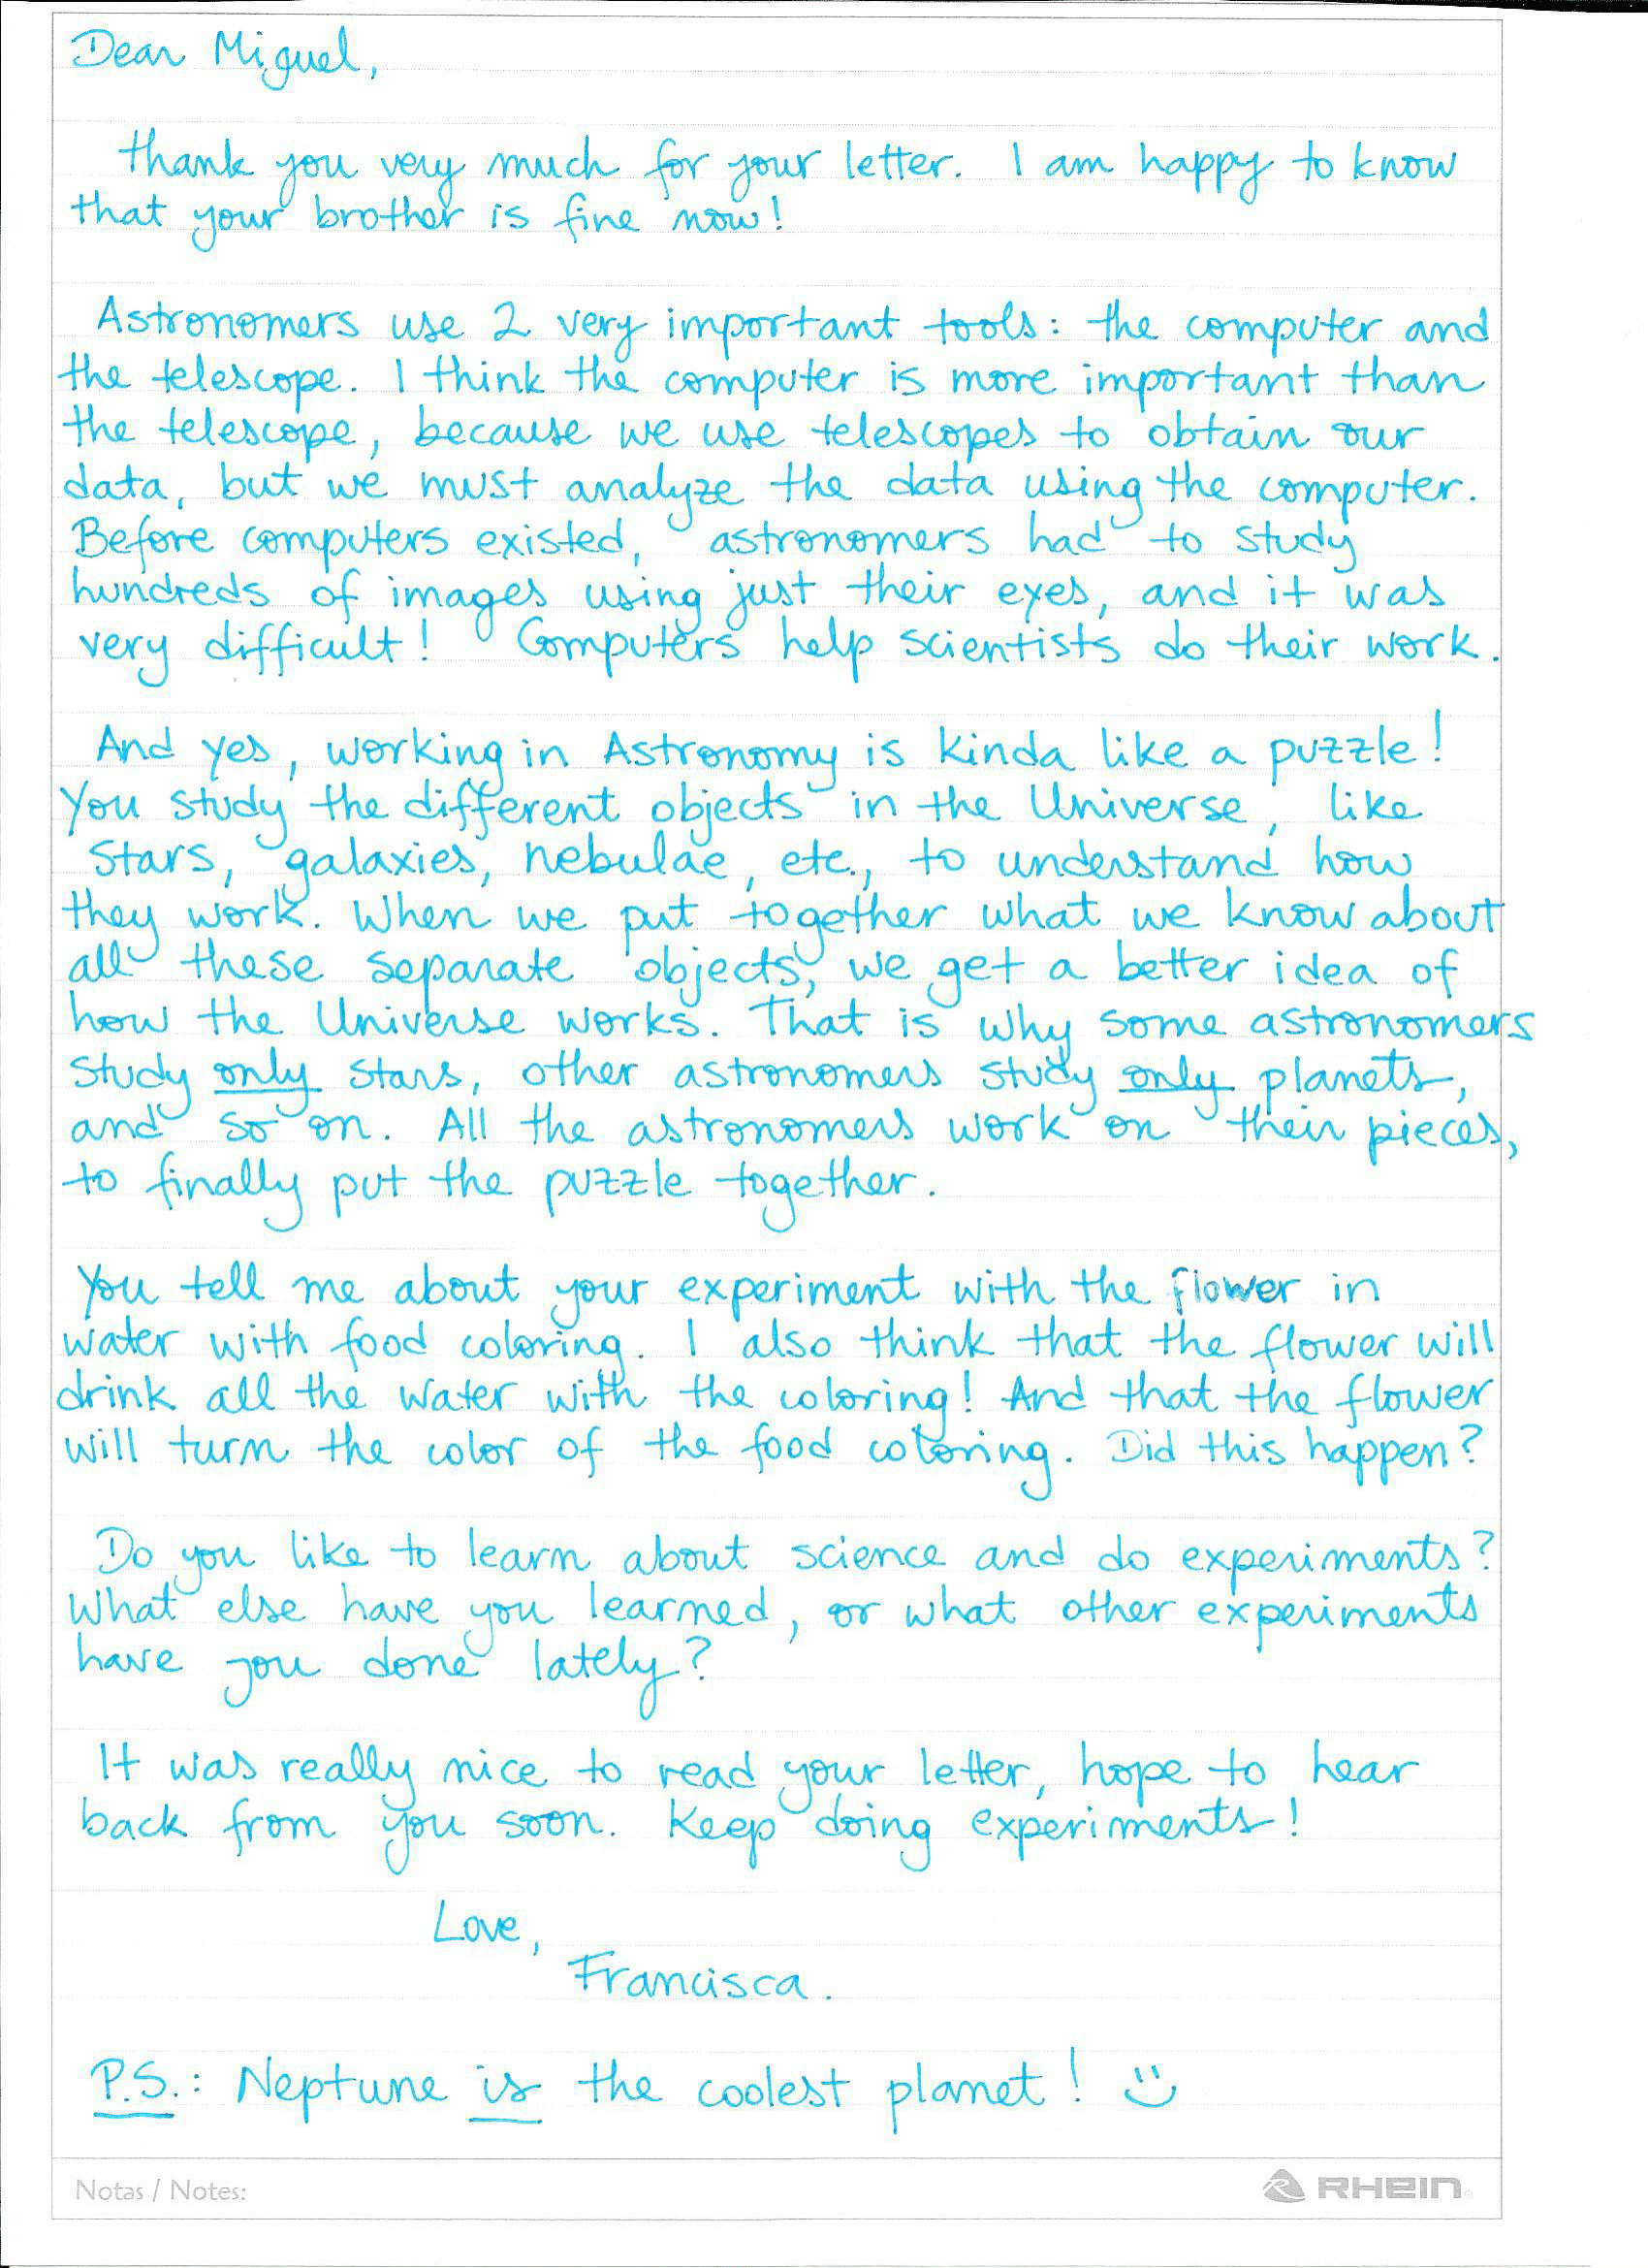 Dear Miguel,
thank you very much for your letter. I am happy to know
that your brother is fine now!
Astronomers use 2 very important tools: the computer and
the telescope. I think the computer is more important than
the telescope, because we use telescopes to obtain our
data, but we must analyze the data using the computer.
Before computers existed, astronomers had to study
hundreds of images using just their eyes, and it was
very difficult! Computers help scientists do their work.
And yes, working in Astronomy is kinda like a puzzle!
You study the different objects in the Universe, like
stars, galaxies, nebulae, etc., to understand how
they work. When we put together what we know about
all these separate objects, we get a better idea of
how the Universe works. That is why some astronomers
study only stars, other astronomers study only planets,
and so on. All the astronomers work on their pieces,
to finally put the puzzle together.
You tell me about your experiment with the flower in
water with food coloring. I also think that the flower will
drink all the water with the coloring! And that the flower
will turn the color of the food coloring. Did this happen?
Do you like to learn about science and do experiments?
What else have you learned, or what other experiments
have you done lately?
It was really nice to read your letter, hope to hear
back from you soon. Keep doing experiments!
Love,
Francisca.
P.S.: Neptune is the coolest planet! :)
Notas / Notes:
RHEIN